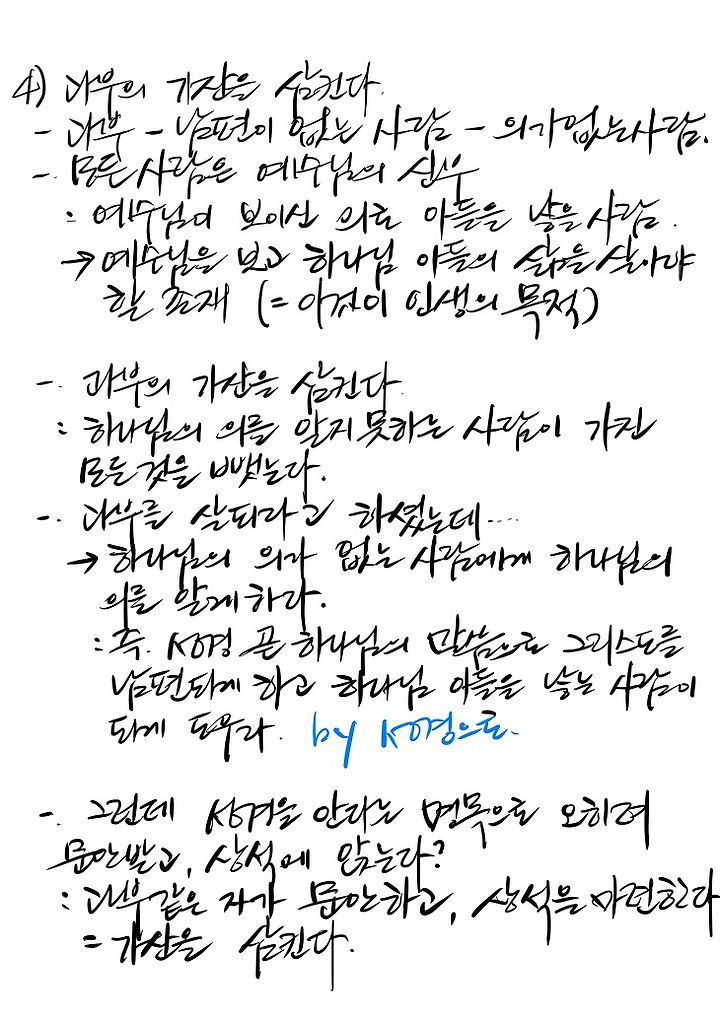 4) 과부의 가산을 삼킨다.
- 과부 - 남편이 없는 사람 - 의가 없는 사람.
- 모든 사람은 예수님의 신부
: 예수님이 보이신 의로 아들을 낳을 사람.
→ 예수님을 보고 하나님 아들의 삶을 살아야
할 존재 (= 이것이 인생의 목적)
- 과부의 가산을 삼킨다.
: 하나님의 의를 알지 못하는 사람이 가진
모든 것을 빼앗는다.
- 과부를 살피라고 하셨는데....
→ 하나님의 의가 없는 사람에게 하나님의
의를 알게 하라.
: 즉. 성경 곧 하나님의 말씀으로 그리스도를
남편되게 하고 하나님 아들을 낳는 사람이
되게 도우라. by 성경으로.
- 그런데 성경을 안다는 명목으로 오히려
문안받고, 상석에 앉는다?
: 과부같은 자가 문안하고, 상석을 마련한다
= 가산을 삼킨다.